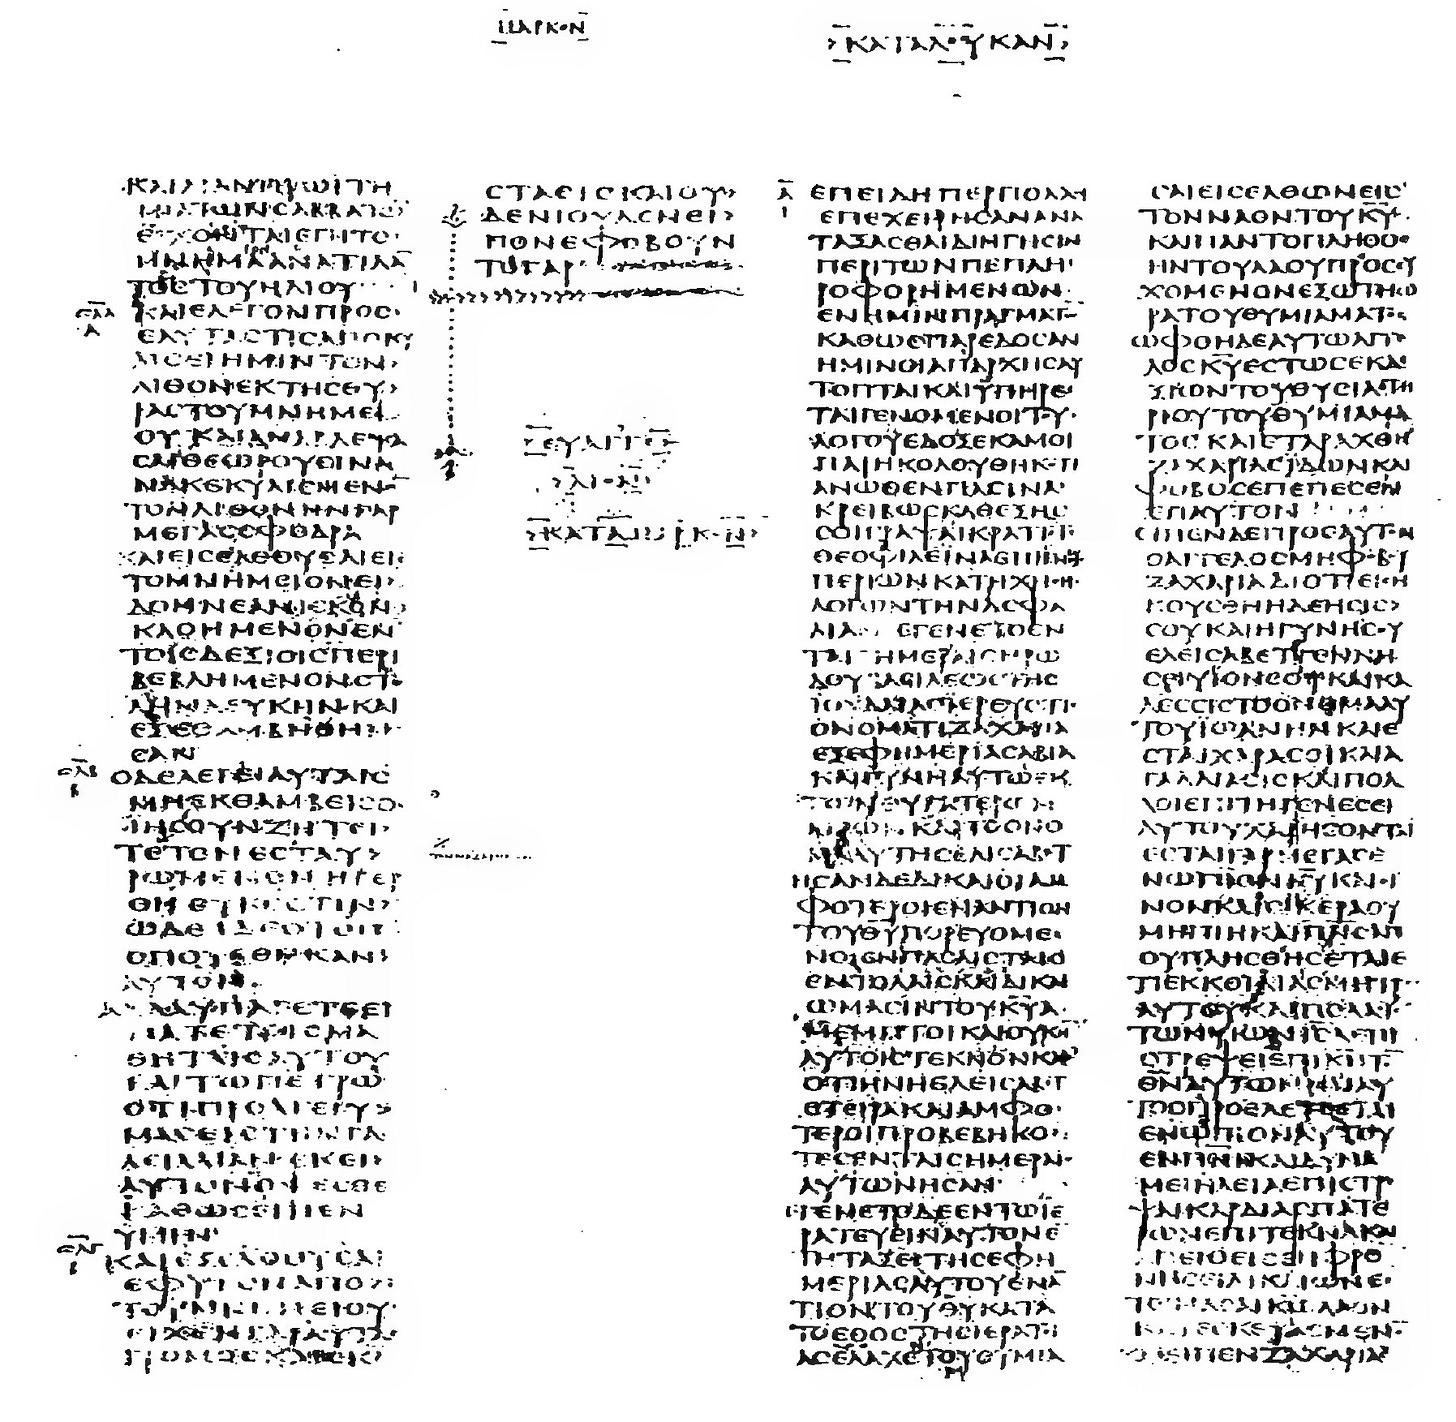 ΜΑΡΚΟΝ
ΚΑΤΑΛΟΥΚΑΝ
ΕΡΧΟΝΤΑΙΕΠΙΤΟ
ΜΝΗΜΑΑΝΑΤΙΛΑ
ΤΟΣΤΟΥΗΛΙΟΥ
ΚΑΙΕΛΕΓΟΝΠΡΟC
ΛΙCΕΙΗΜΙΝΤΟΝ
ΛΙΘΟΝΕΚΤΗCΘΥ
ΡΑCΤΟΥΜΝΗΜΕΙ
ΟΥΚΑΙΑΝΑΒΛΕΨΑ
CΑΙΘΕΩΡΟΥCΙΝΑ
ΝΑΚΕΚΥΛΙCΜΕΝΟ
ΤΟΝΛΙΘΟΝΗΝΓΑΡ
ΜΕΓΑCCΦΟΔΡΑ
ΚΑΙΕΙCΕΛΘΟΥCΑΙΕΙC
ΤΟΜΝΗΜΕΙΟΝΕΙ
ΔΟΝΝΕΑΝΙCΚΟΝ
ΚΑΘΗΜΕΝΟΝΕΝ
ΤΟΙCΔΕΞΙΟΙCΠΕΡΙ
ΒΕΒΛΗΜΕΝΟΝCΤΟ
ΛΗΝΛΕΥΚΗΝΚΑΙ
ΕΞΕΘΑΜΒΗΘΗ
CΑΝ
ΟΔΕΛΕΓΕΙΑΥΤΑΙC
ΜΗΕΚΘΑΜΒΕΙCΘΕ
ΙΝΖΗΤΕΙ
ΤΕΤΟΝΕCΤΑΥ
ΡΩΜΕΝΟΝΗΓΕΡ
ΘΗΟΥΚΕCΤΙΝ
ΩΔΕΙΔΕΟΤΟΠΟC
ΟΠΟΥΕΘΗΚΑΝ
ΑΥΤΟΝ
ΑΛΛΑΥΠΑΓΕΤΕΕΙ
ΠΑΤΕΤΟΙCΜΑ
ΘΗΤΑΙCΑΥΤΟΥ
ΚΑΙΤΩΠΕΤΡΩ
ΟΤΙΠΡΟΑΓΕΙΥ
ΜΑCΕΙCΤΗΝΓΑ
ΛΕΙΛΑΙΑΝΕΚΕΙ
ΑΥΤΟΝΟΨΕCΘΕ
ΚΑΘΩCΕΙΠΕΝ
ΥΜΙΝ
ΚΑΙΕΞΕΛΘΟΥCΑΙ
ΕΦΥΓΟΝΑΠΟ
ΤΟΥΜΝΗΜΕΙΟΥ
ΕΙΧΕΝΓΑΡΑΥΤΑC
CΤΑCΙCΚΑΙΟΥ
ΔΕΝΙΟΥΔΕΝΕΙ
ΠΟΝΕΦΟΒΟΥΝ
ΤΟΓΑΡ
ΕΥΑΓΓΕ
ΛΙΟΝ
ΚΑΤΑΜΑΡΚΟΝ
ΕΠΕΙΔΗΠΕΡΠΟΛΛΟΙ
ΕΠΕΧΕΙΡΗCΑΝΑΝΑ
ΤΑΞΑCΘΑΙΔΙΗΓΗCΙΝ
ΠΕΡΙΤΩΝΠΕΠΛΗ
ΡΟΦΟΡΗΜΕΝΩΝ
ΕΝΗΜΙΝΠΡΑΓΜΑΤΩ
ΚΑΘΩCΠΑΡΕΔΟCΑΝ
ΗΜΙΝΟΙΑΠΑΡΧΗCΑΥ
ΤΟΠΤΑΙΚΑΙΥΠΗΡΕ
ΤΑΙΓΕΝΟΜΕΝΟΙΤΟΥ
ΛΟΓΟΥΕΔΟΞΕΚΑΜΟΙ
ΠΑΡΗΚΟΛΟΥΘΗΚΟΤΙ
ΑΝΩΘΕΝΠΑCΙΝΑ
ΚΡΕΙΒΩCΚΑΘΕΞΗC
CΟΙΓΡΑΨΑΙΚΡΑΤΙCΤΕ
ΘΕΟΦΙΛΕΙΝΑΕΠΙΓΝΩC
ΠΕΡΙΩΝΚΑΤΗΧΗΘΗC
ΛΟΓΩΝΤΗΝΑCΦΑ
ΛΙΑΝ ΕΓΕΝΕΤΟΕΝ
ΤΑΙCΗΜΕΡΑΙCΗΡΩ
ΔΟΥΒΑCΙΛΕΩCΤΗC
ΙΟΥΔΑΙΑCΙΕΡΕΥCΤΙC
ΟΝΟΜΑΤΙΖΑΧΑΡΙΑC
ΕΞΕΦΗΜΕΡΙΑCΑΒΙΑ
ΚΑΙΓΥΝΗΑΥΤΩΕΚ
ΤΩΝΘΥΓΑΤΕΡΩΝ
ΑΑΡΩΝΚΑΙΤΟΟΝΟ
ΜΑΑΥΤΗCΕΛΙCΑΒΕΤ
ΗCΑΝΔΕΔΙΚΑΙΟΙΑΜ
ΦΟΤΕΡΟΙΕΝΑΝΤΙΟΝ
ΤΟΥΘΥΠΟΡΕΥΟΜΕ
ΝΟΙΕΝΠΑCΑΙCΤΑΙC
ΕΝΤΟΛΑΙCΚΑΙΔΙΚΑΙ
ΩΜΑCΙΝΤΟΥΚΥΑ
ΜΕΜΠΤΟΙΚΑΙΟΥΚΗ
ΑΥΤΟΙCΤΕΚΝΟΝΚΑΘ
ΟΤΙΗΝΗΕΛΕΙCΑΒΕΤ
CΤΕΙΡΑΚΑΙΑΜΦΟ
ΤΕΡΟΙΠΡΟΒΕΒΗΚΟ
ΤΕCΕΝΤΑΙCΗΜΕΡΑΙC
ΑΥΤΩΝΗCΑΝ
ΕΓΕΝΕΤΟΔΕΕΝΤΩΙΕ
ΡΑΤΕΥΕΙΝΑΥΤΟΝΕ
ΤΗΤΑΞΕΙΤΗCΕΦΗ
ΜΕΡΙΑCΑΥΤΟΥΕΝΑ
ΤΙΟΝΤΟΥΘΥΚΑΤΑ
ΤΟΕΘΟCΤΗCΙΕΡΑΤΙ
ΑCΕΛΑΧΕΤΟΥΘΥΜΙΑ
CΑΙΕΙCΕΛΘΩΝΕΙC
ΤΟΝΝΑΟΝΤΟΥΚΥ
ΚΑΙΠΑΝΤΟΠΛΗΘΟC
ΗΝΤΟΥΛΑΟΥΠΡΟCΕΥ
ΧΟΜΕΝΟΝΕΞΩΤΗΩ
ΡΑΤΟΥΘΥΜΙΑΜΑΤΟC
ΩΦΘΗΔΕΑΥΤΩΑΓΓΕ
ΛΟCΚΥΕCΤΩCΕΚΔΕ
ΞΙΩΝΤΟΥΘΥCΙΑCΤΗ
ΡΙΟΥΤΟΥΘΥΜΙΑΜΑ
ΤΟCΚΑΙΕΤΑΡΑΧΘΗ
ΖΑΧΑΡΙΑCΙΔΩΝΚΑΙ
ΦΟΒΟCΕΠΕΠΕCΕΝ
ΕΠΑΥΤΟΝ
ΕΙΠΕΝΔΕΠΡΟCΑΥΤΟΝ
ΟΑΓΓΕΛΟCΜΗΦΟΒΟΥ
ΖΑΧΑΡΙΑΔΙΟΤΙΕΙCΗ
ΚΟΥCΘΗΗΔΕΗCΙC
CΟΥΚΑΙΗΓΥΝΗCΟΥ
ΕΛΕΙCΑΒΕΤΓΕΝΝΗ
CΕΙΥΙΟΝCΟΙΚΑΙΚΑ
ΛΕCΕΙCΤΟΟΝΟΜΑΑΥ
ΤΟΥΙΩΑΝΝΗΝΚΑΙΕ
CΤΑΙΧΑΡΑCΟΙΚΑΙΑ
ΓΑΛΛΙΑCΙCΚΑΙΠΟΛ
ΛΟΙΕΠΙΤΗΓΕΝΕCΕΙ
ΑΥΤΟΥΧΑΡΗCΟΝΤΑΙ
ΕCΤΑΙΓΑΡΜΕΓΑCΕ
ΝΩΠΙΟΝΚΥΚΑΙΟΙ
ΝΟΝΚΑΙCΙΚΕΡΑΟΥ
ΜΗΠΙΗΚΑΙΠΝCΑΓΙ
ΟΥΠΛΗCΘΗCΕΤΑΙΕ
ΤΙΕΚΚΟΙΛΙΑCΜΗΤΡΟC
ΑΥΤΟΥΚΑΙΠΟΛΛΟΥC
ΤΩΝΥΙΩΝΙCΛΕΠΙ
CΤΡΕΨΕΙΕΠΙΚΝΤΟ
ΘΝΑΥΤΩΝΚΑΙΑΥ
ΤΟCΠΡΟΕΛΕΥCΕΤΑΙ
ΕΝΩΠΙΟΝΑΥΤΟΥ
ΕΝΠΝΙΚΑΙΔΥΝΑ
ΜΕΙΗΛΕΙΑΕΠΙCΤΡΕ
ΨΑΙΚΑΡΔΙΑCΠΑΤΕ
ΡΩΝΕΠΙΤΕΚΝΑΚΑΙ
ΑΠΕΙΘΕΙCΕΝΦΡΟ
ΝΗCΕΙΔΙΚΑΙΩΝΕ
ΤΟΙΜΑCΑΙΚΩΛΑΟΝ
ΚΑΤΕCΚΕΥΑCΜΕΝΟ
ΚΑΙΕΙΠΕΝΖΑΧΑΡΙΑC